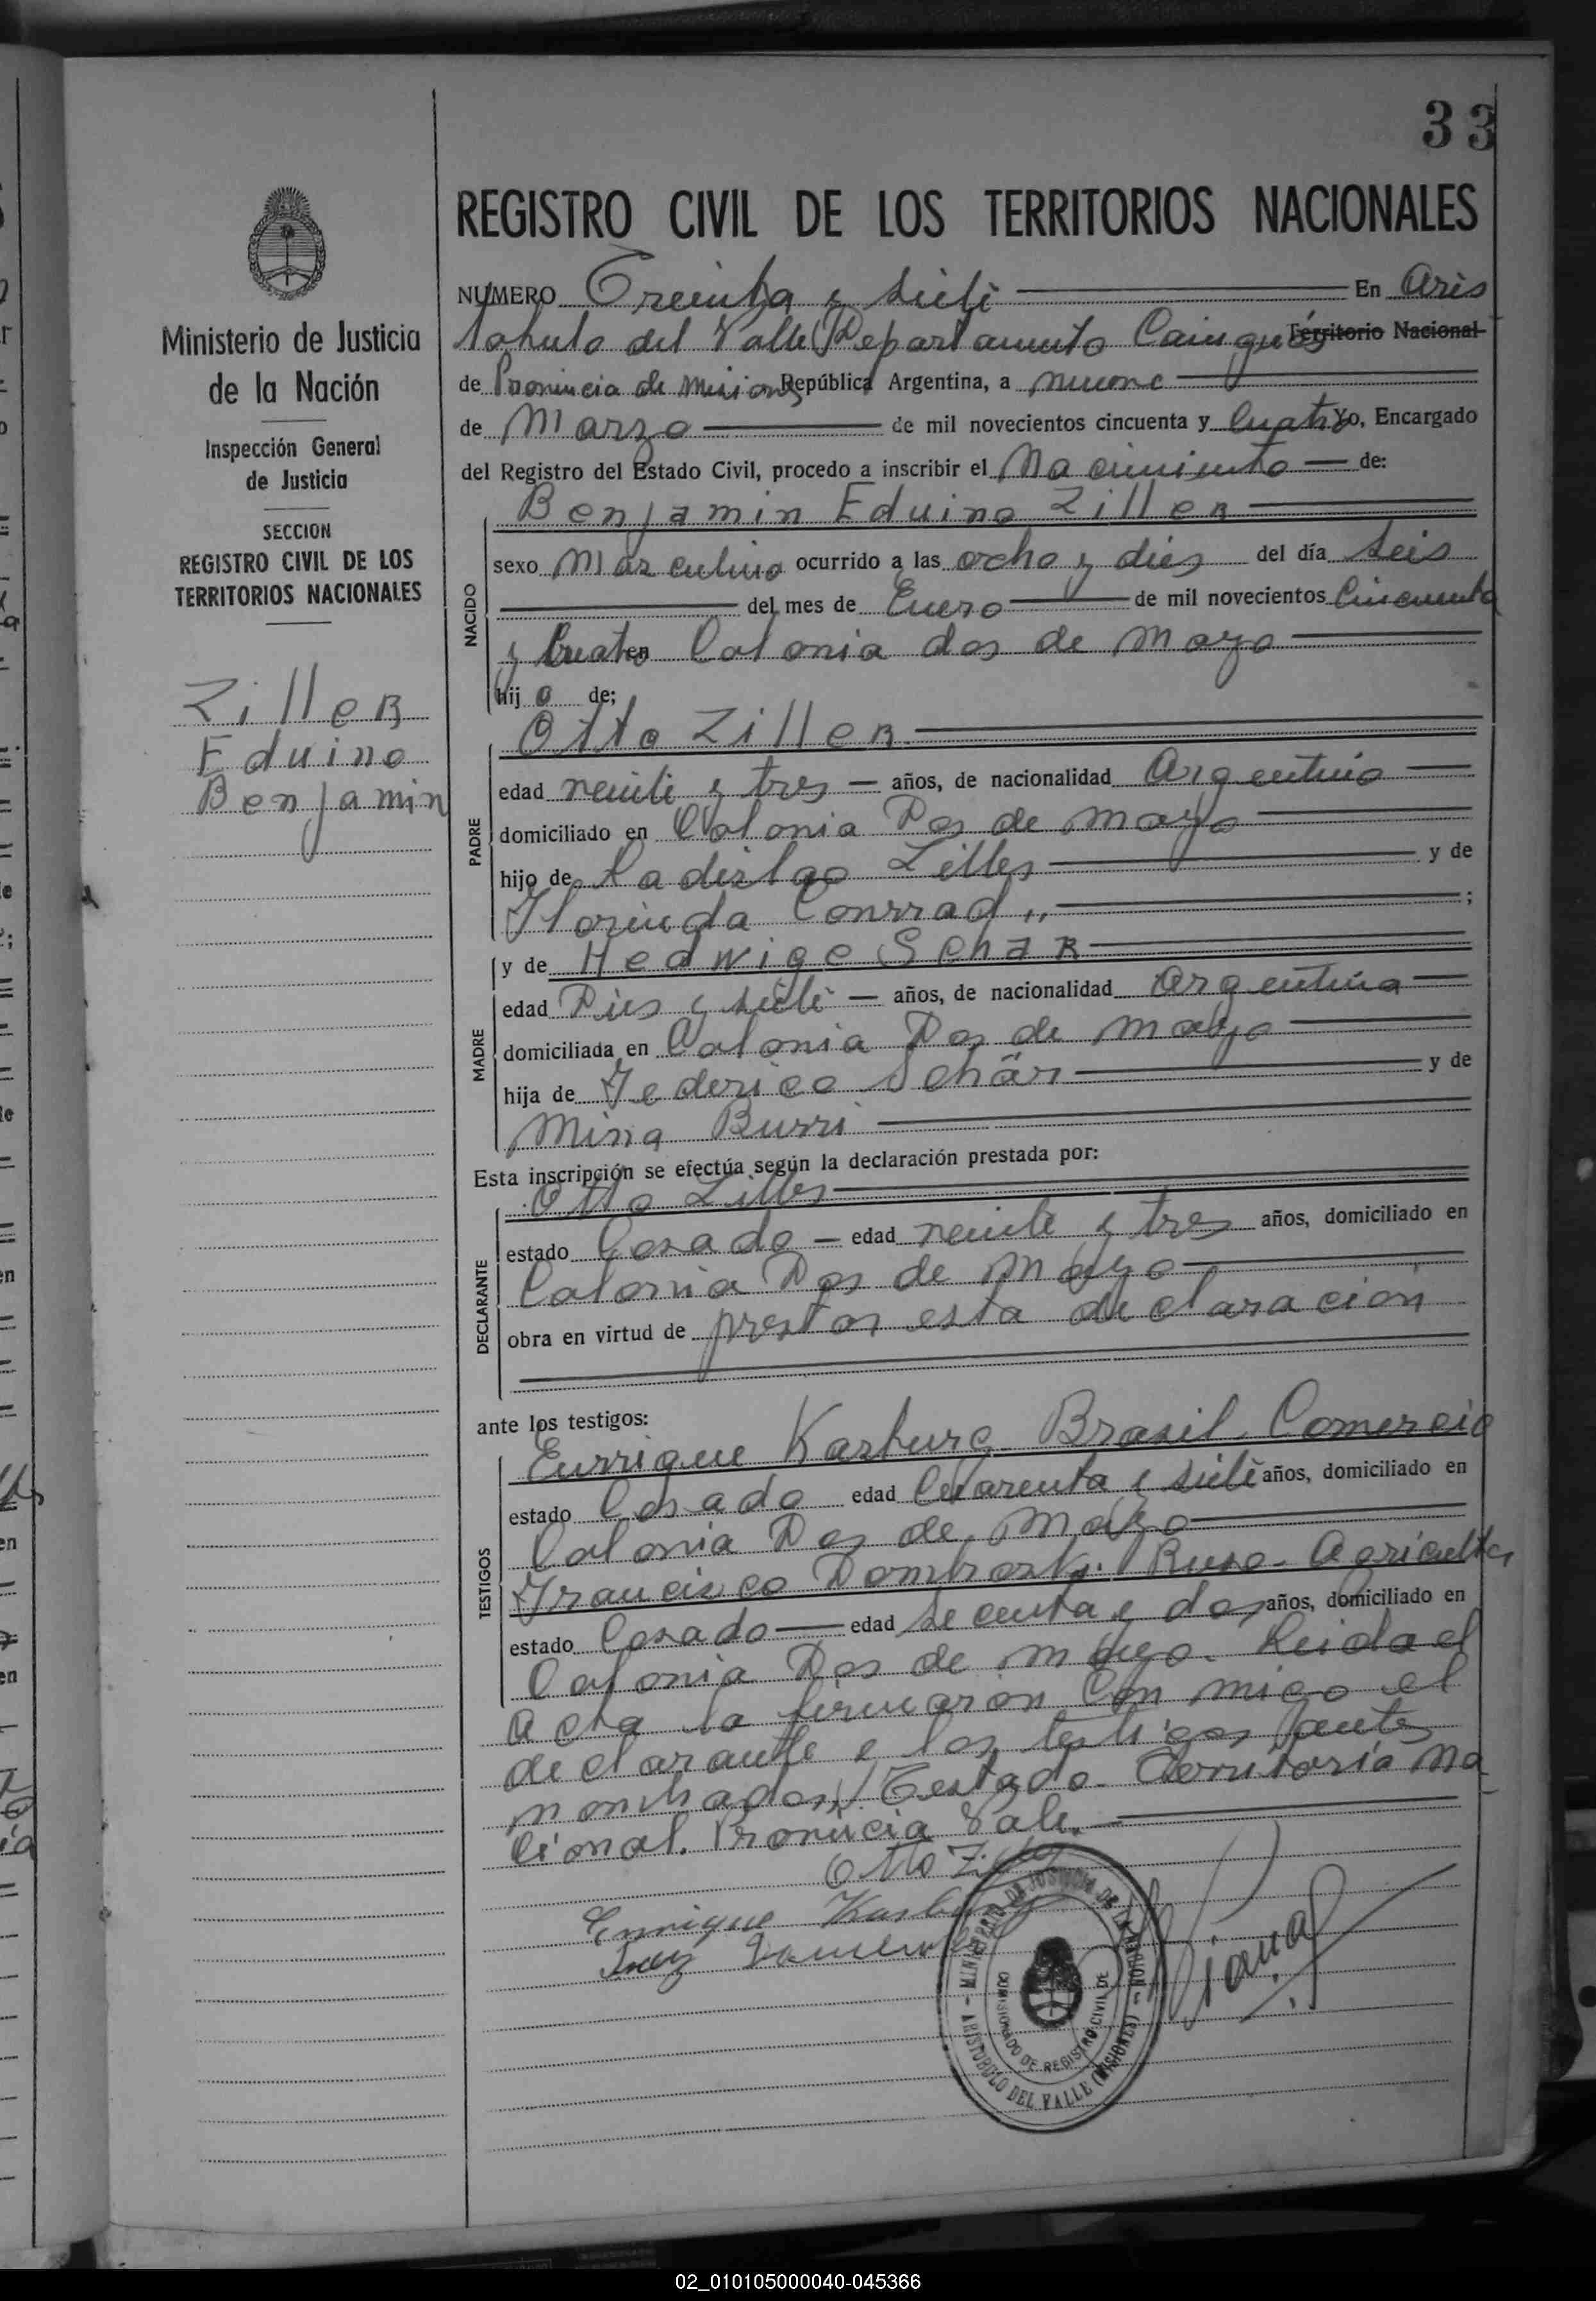 33
REGISTRO CIVIL DE LOS TERRITORIOS NACIONALES
Ministerio de Justicia
de la Nación
Inspección General
de Justicia
SECCION
REGISTRO CIVIL DE LOS
TERRITORIOS NACIONALES
Ziller
Eduino
Benjamin
NUMERO Treinta y siete En Aris
tobulo del Valle Departamento Cainguás Territorio Nacional
de Provincia de Misiones República Argentina, a nueve
de Marzo de mil novecientos cincuenta y Cuatro Yo, Encargado
del Registro del Estado Civil, procedo a inscribir el Nacimiento de:
Benjamin Eduino Ziller
NACIDO
sexo Masculino ocurrido a las ocho y dies del día seis
del mes de Enero de mil novecientos Cincuenta
y Cuatro en Colonia dos de Mayo
hijo de;
Otto Ziller
PADRE
edad veinte y tres años, de nacionalidad Argentino
domiciliado en Colonia Dos de Mayo
hijo de Ladislao Ziller y de
Florinda Conrrad ;
y de Hedwige Schar
MADRE
edad Dies y siete años, de nacionalidad Argentina
domiciliada en Colonia Dos de Mayo
hija de Federico Schär y de
Mina Burri
Esta inscripción se efectúa según la declaración prestada por:
Otto Ziller
DECLARANTE
estado Casado edad veinte y tres años, domiciliado en
Colonia Dos de Mayo
obra en virtud de prestar esta declaración
ante los testigos:
Enrrique Karburg Brasil Comercio
TESTIGOS
estado Casado edad Cuarenta y siete años, domiciliado en
Colonia Dos de Mayo
Francisco Ruso Agricultor
estado Casado edad secenta y dos años, domiciliado en
Colonia Dos de Mayo. Leida el
Acta la firmaron Con migo el
declarante y los testigos antes
nombrados. Testado. Territorio Na
cional. Provincia Vale.
Otto Ziller
Enrique
MINISTERIO DE JUSTICIA DE LA NACION - ARISTOBULO DEL VALLE (MISIONES)
COMISIONADO DE REGISTRO CIVIL DE
02_010105000040-045366